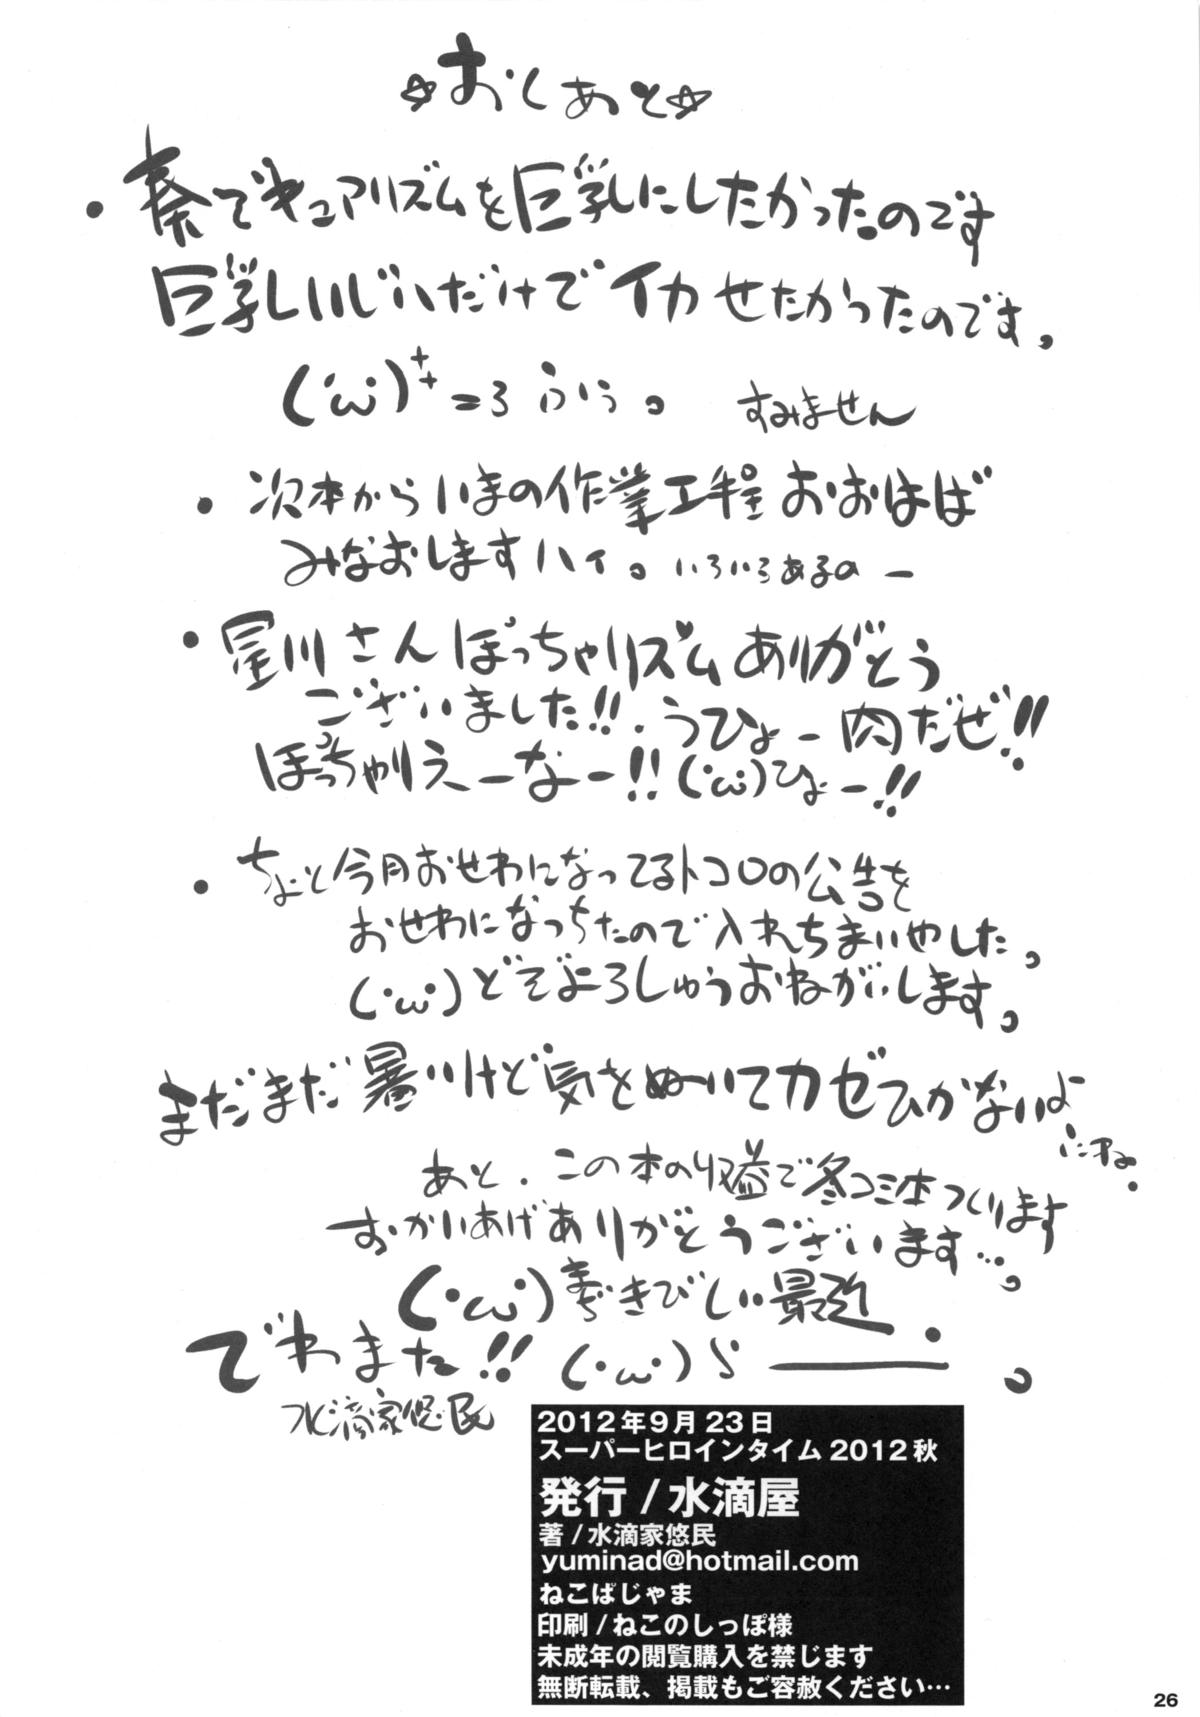 ☆おしあと☆
(・ω・)++=3 ふぅ。 すみません
・次本からいまの作業工程おおはば
みなおしますハイ。いろいろあるのー
・星川さんぽっちゃリズムありがとう
ございました!!.うひょー肉だぜ!!
ぽっちゃりえーなー!!(・ω・)ひょー!!
・ちょと今月おせわになってるトコロの公告を
おせわになっちたので入れちまいやした。
(・ω・)どぞよろしゅうおねがいします。
まだまだ暑いけど気をぬいてカゼひかないよ
にね。
あと、この本の収益で冬コミ本つくります
おかいあげありがとうございます…。
(・ω・)きびしい最近
でわまた!! (・ω・)ノシ
水滴家悠民
2012年9月23日
スーパーヒロインタイム2012秋
発行/水滴屋
著/水滴家悠民
yuminad@hotmail.com
ねこぱじゃま
印刷/ねこのしっぽ様
未成年の閲覧購入を禁じます
無断転載、掲載もご容赦ください…
26